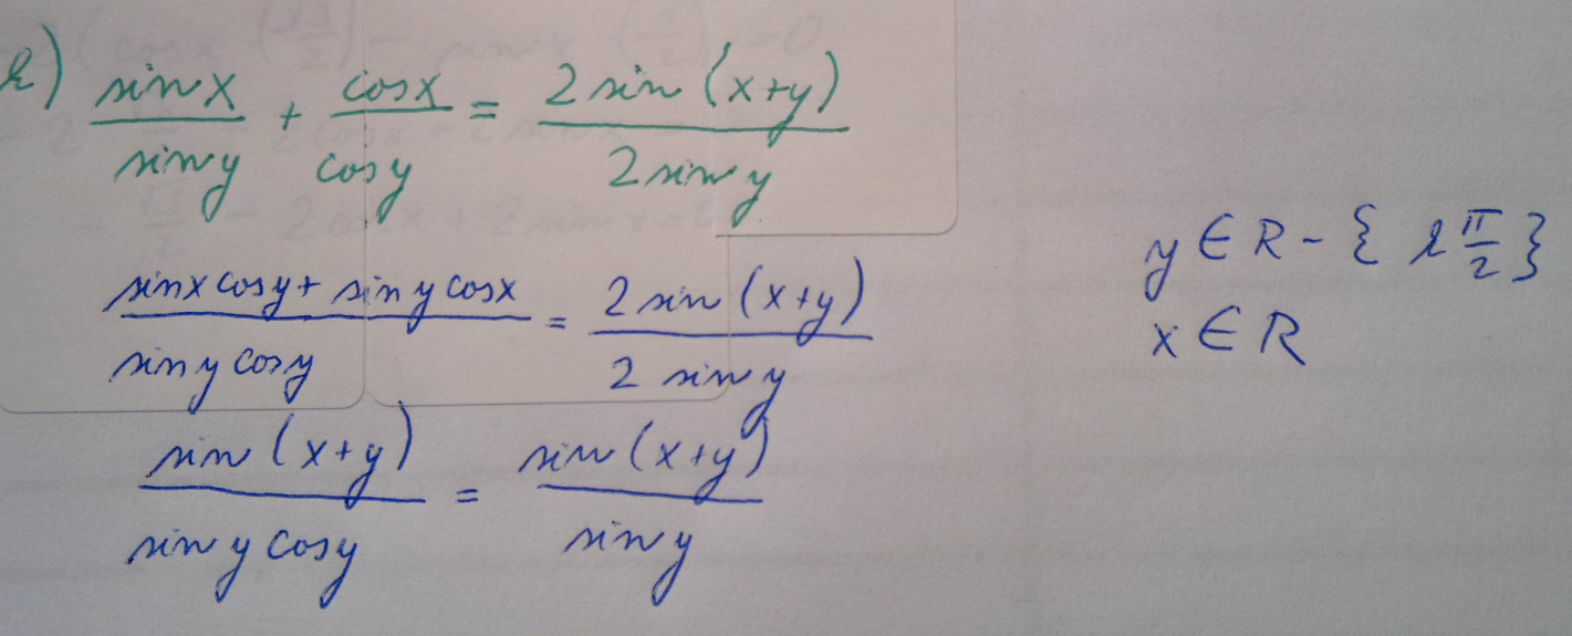 k) sinx/siny + cosx/cosy = 2 sin (x+y)/2 sin y
sinx cosy + sin y cosx/sin y cosy = 2 sin (x+y)/2 sin y
y ∈ R - { k π/2 }
x ∈ R
sin (x+y)/sin y cosy = sin (x+y)/sin y